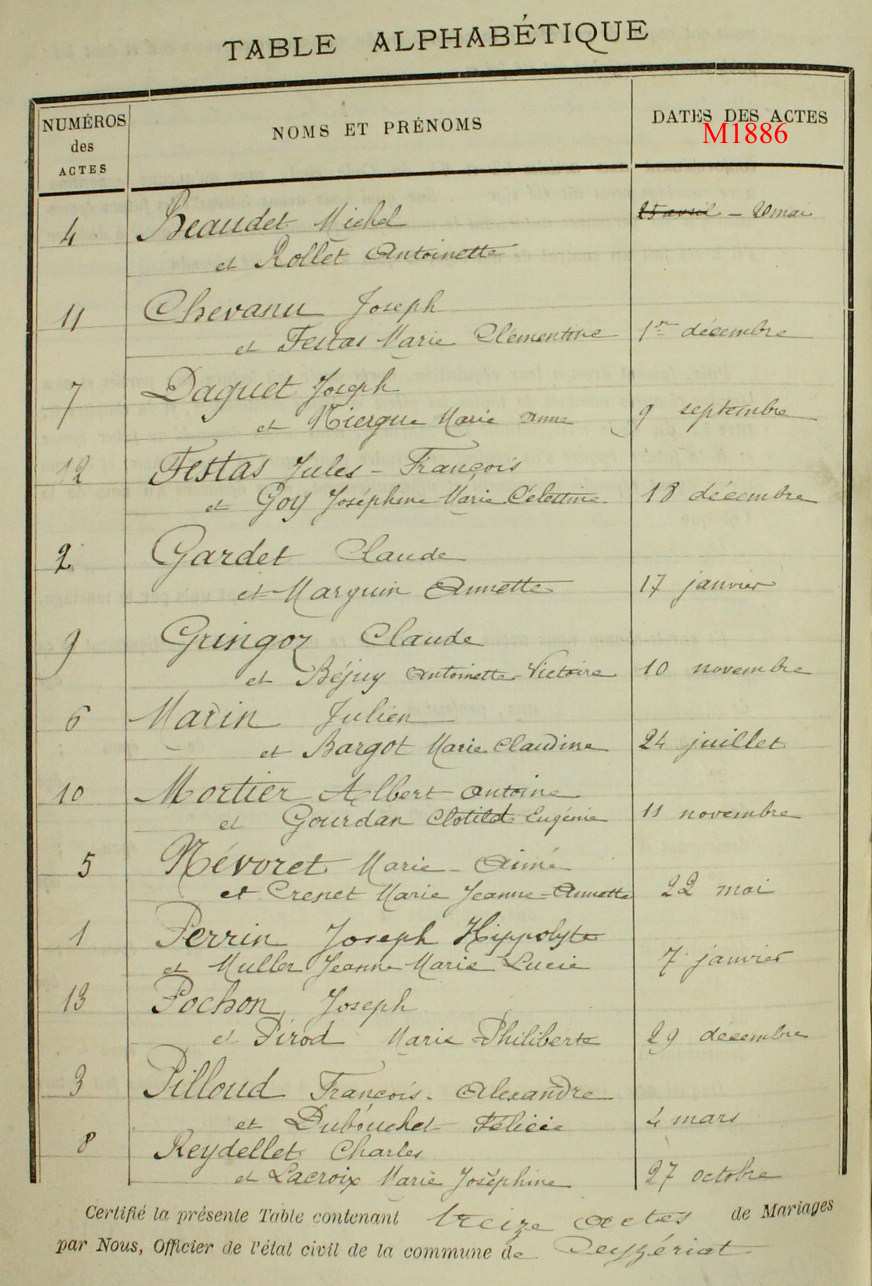 TABLE ALPHABÉTIQUE
NUMÉROS des ACTES NOMS ET PRÉNOMS DATES DES ACTES
M1886
4 Beaudet Michel 25 avril - 20 mai
et Rollet Antoinette
11 Chevanu Joseph
et Festas Marie Clémentine 1er décembre
7 Daguet Joseph
et Niergue Marie Anne 9 septembre
12 Festas Jules - François
et Goy Joséphine Marie Célestine 18 décembre
2 Gardet Claude
et Marguin Annette 17 janvier
9 Gringoz Claude
et Béjuy Antoinette Victoire 10 novembre
6 Marin Julien
et Bargot Marie Claudine 24 juillet
10 Mortier Albert Antoine
et Gourdan Clotilde Eugénie 11 novembre
5 Névoret Marie - Aimé
et Cresnet Marie Jeanne - Annette 22 mai
1 Perrin Joseph Hippolyte
et Muller Jeanne Marie Lucie 7 janvier
13 Pochon Joseph
et Pirod Marie Philiberte 29 décembre
3 Pilloud François - Alexandre
et Dubouchet Félicie 4 mars
8 Reydellet Charles
et Lacroix Marie Joséphine 27 octobre
Certifié la présente Table contenant treize actes de Mariages
par Nous, Officier de l'état civil de la commune de Ceyzériat